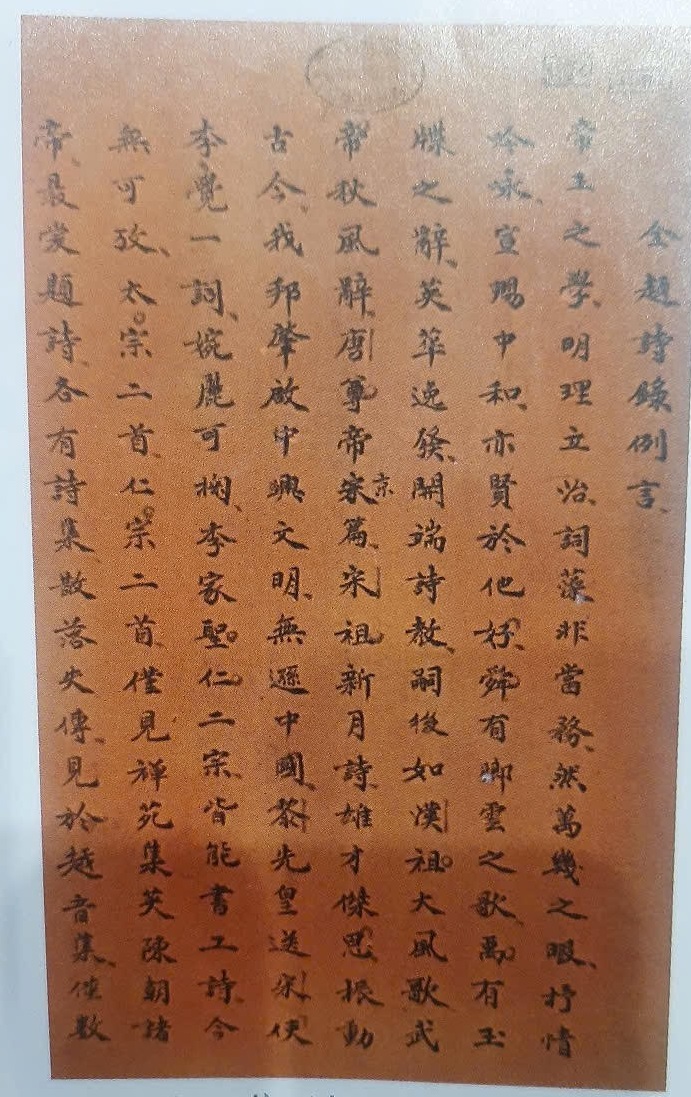 全越詩錄例言
帝王之學明理立治詞藻非當務然萬幾之暇抒情
吟咏宣暢中和亦賢於他好舜有卿雲之歌禹有玉
牒之辭英華逸發開端詩教嗣後如漢祖大風歌武
帝秋風辭唐尊帝京篇宋祖新月詩雄才傑思振動
古今我邦肇啟中興文明無遜中國黎先皇送宋使
李覺一詞婉麗可掬李家聖仁二宗皆能書工詩今
無可攷太宗二首仁宗二首僅見禅苑集英陳朝諸
帝最裳題詩各有詩集散落失傳見於越音集僅數